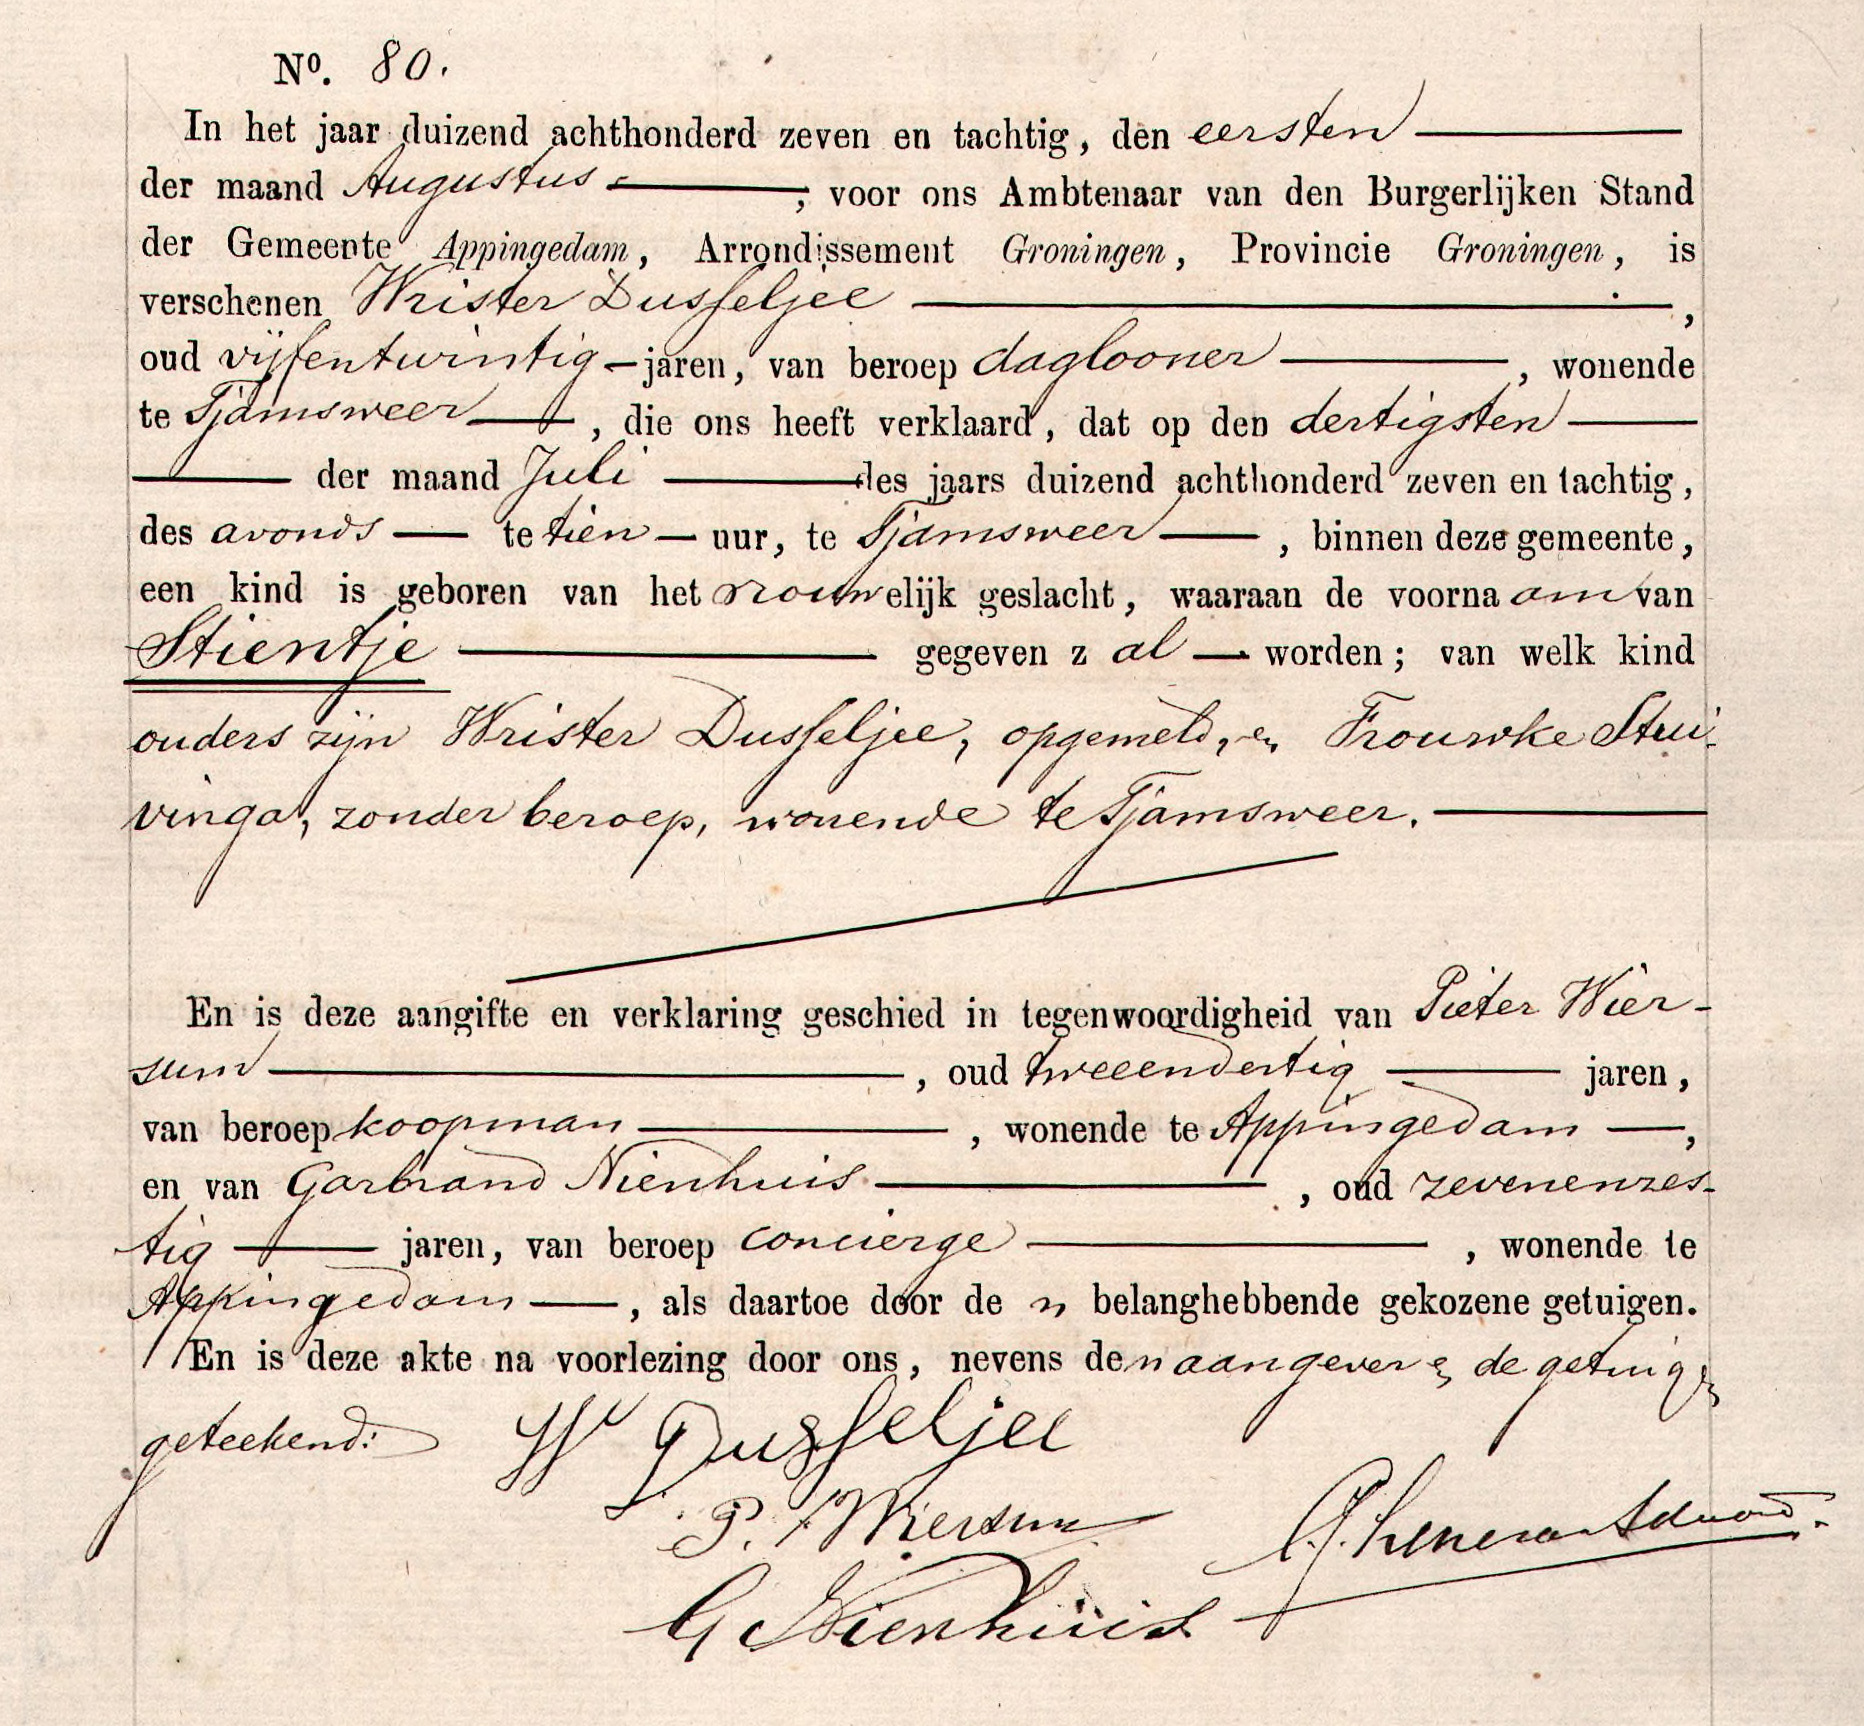 No. 80.
In het jaar duizend achthonderd zeven en tachtig, den eersten
der maand Augustus, voor ons Ambtenaar van den Burgerlijken Stand
der Gemeente Appingedam, Arrondissement Groningen, Provincie Groningen, is
verschenen Wrister Dusseljee,
oud vijfentwintig jaren, van beroep daglooner, wonende
te Tjamsweer, die ons heeft verklaard, dat op den dertigsten
der maand Juli des jaars duizend achthonderd zeven en tachtig,
des avonds te tien uur, te Tjamsweer, binnen deze gemeente,
een kind is geboren van het vrouwelijk geslacht, waaraan de voornaam van
Stientje gegeven zal worden; van welk kind
ouders zijn Wrister Dusseljee, opgemeld, en Frouwke Stui-
vinga, zonder beroep, wonende te Tjamsweer.
En is deze aangifte en verklaring geschied in tegenwoordigheid van Pieter Wier-
sum, oud tweeendertig jaren,
van beroep koopman, wonende te Appingedam,
en van Garbrand Nienhuis, oud zevenenzes-
tig jaren, van beroep concierge, wonende te
Appingedam, als daartoe door de n belanghebbende gekozene getuigen.
En is deze akte na voorlezing door ons, nevens den aangever en de getuigen
geteekend: W Dusseljee
P. Wiersum
G Nienhuis